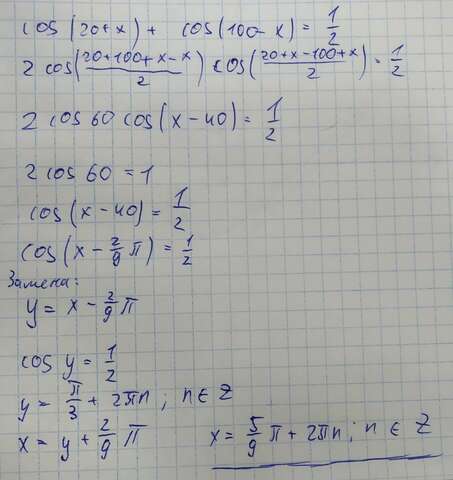 cos(20+x) + cos(100-x) = 1/2
2 cos((20+100+x-x)/2) cos((20+x-100+x)/2) = 1/2
2 cos 60 cos(x-40) = 1/2
2 cos 60 = 1
cos(x-40) = 1/2
cos(x - 2/9 π) = 1/2
Замена:
y = x - 2/9 π
cos y = 1/2
y = π/3 + 2πn ; n ∈ Z
x = y + 2/9 π x = 5/9 π + 2πn ; n ∈ Z